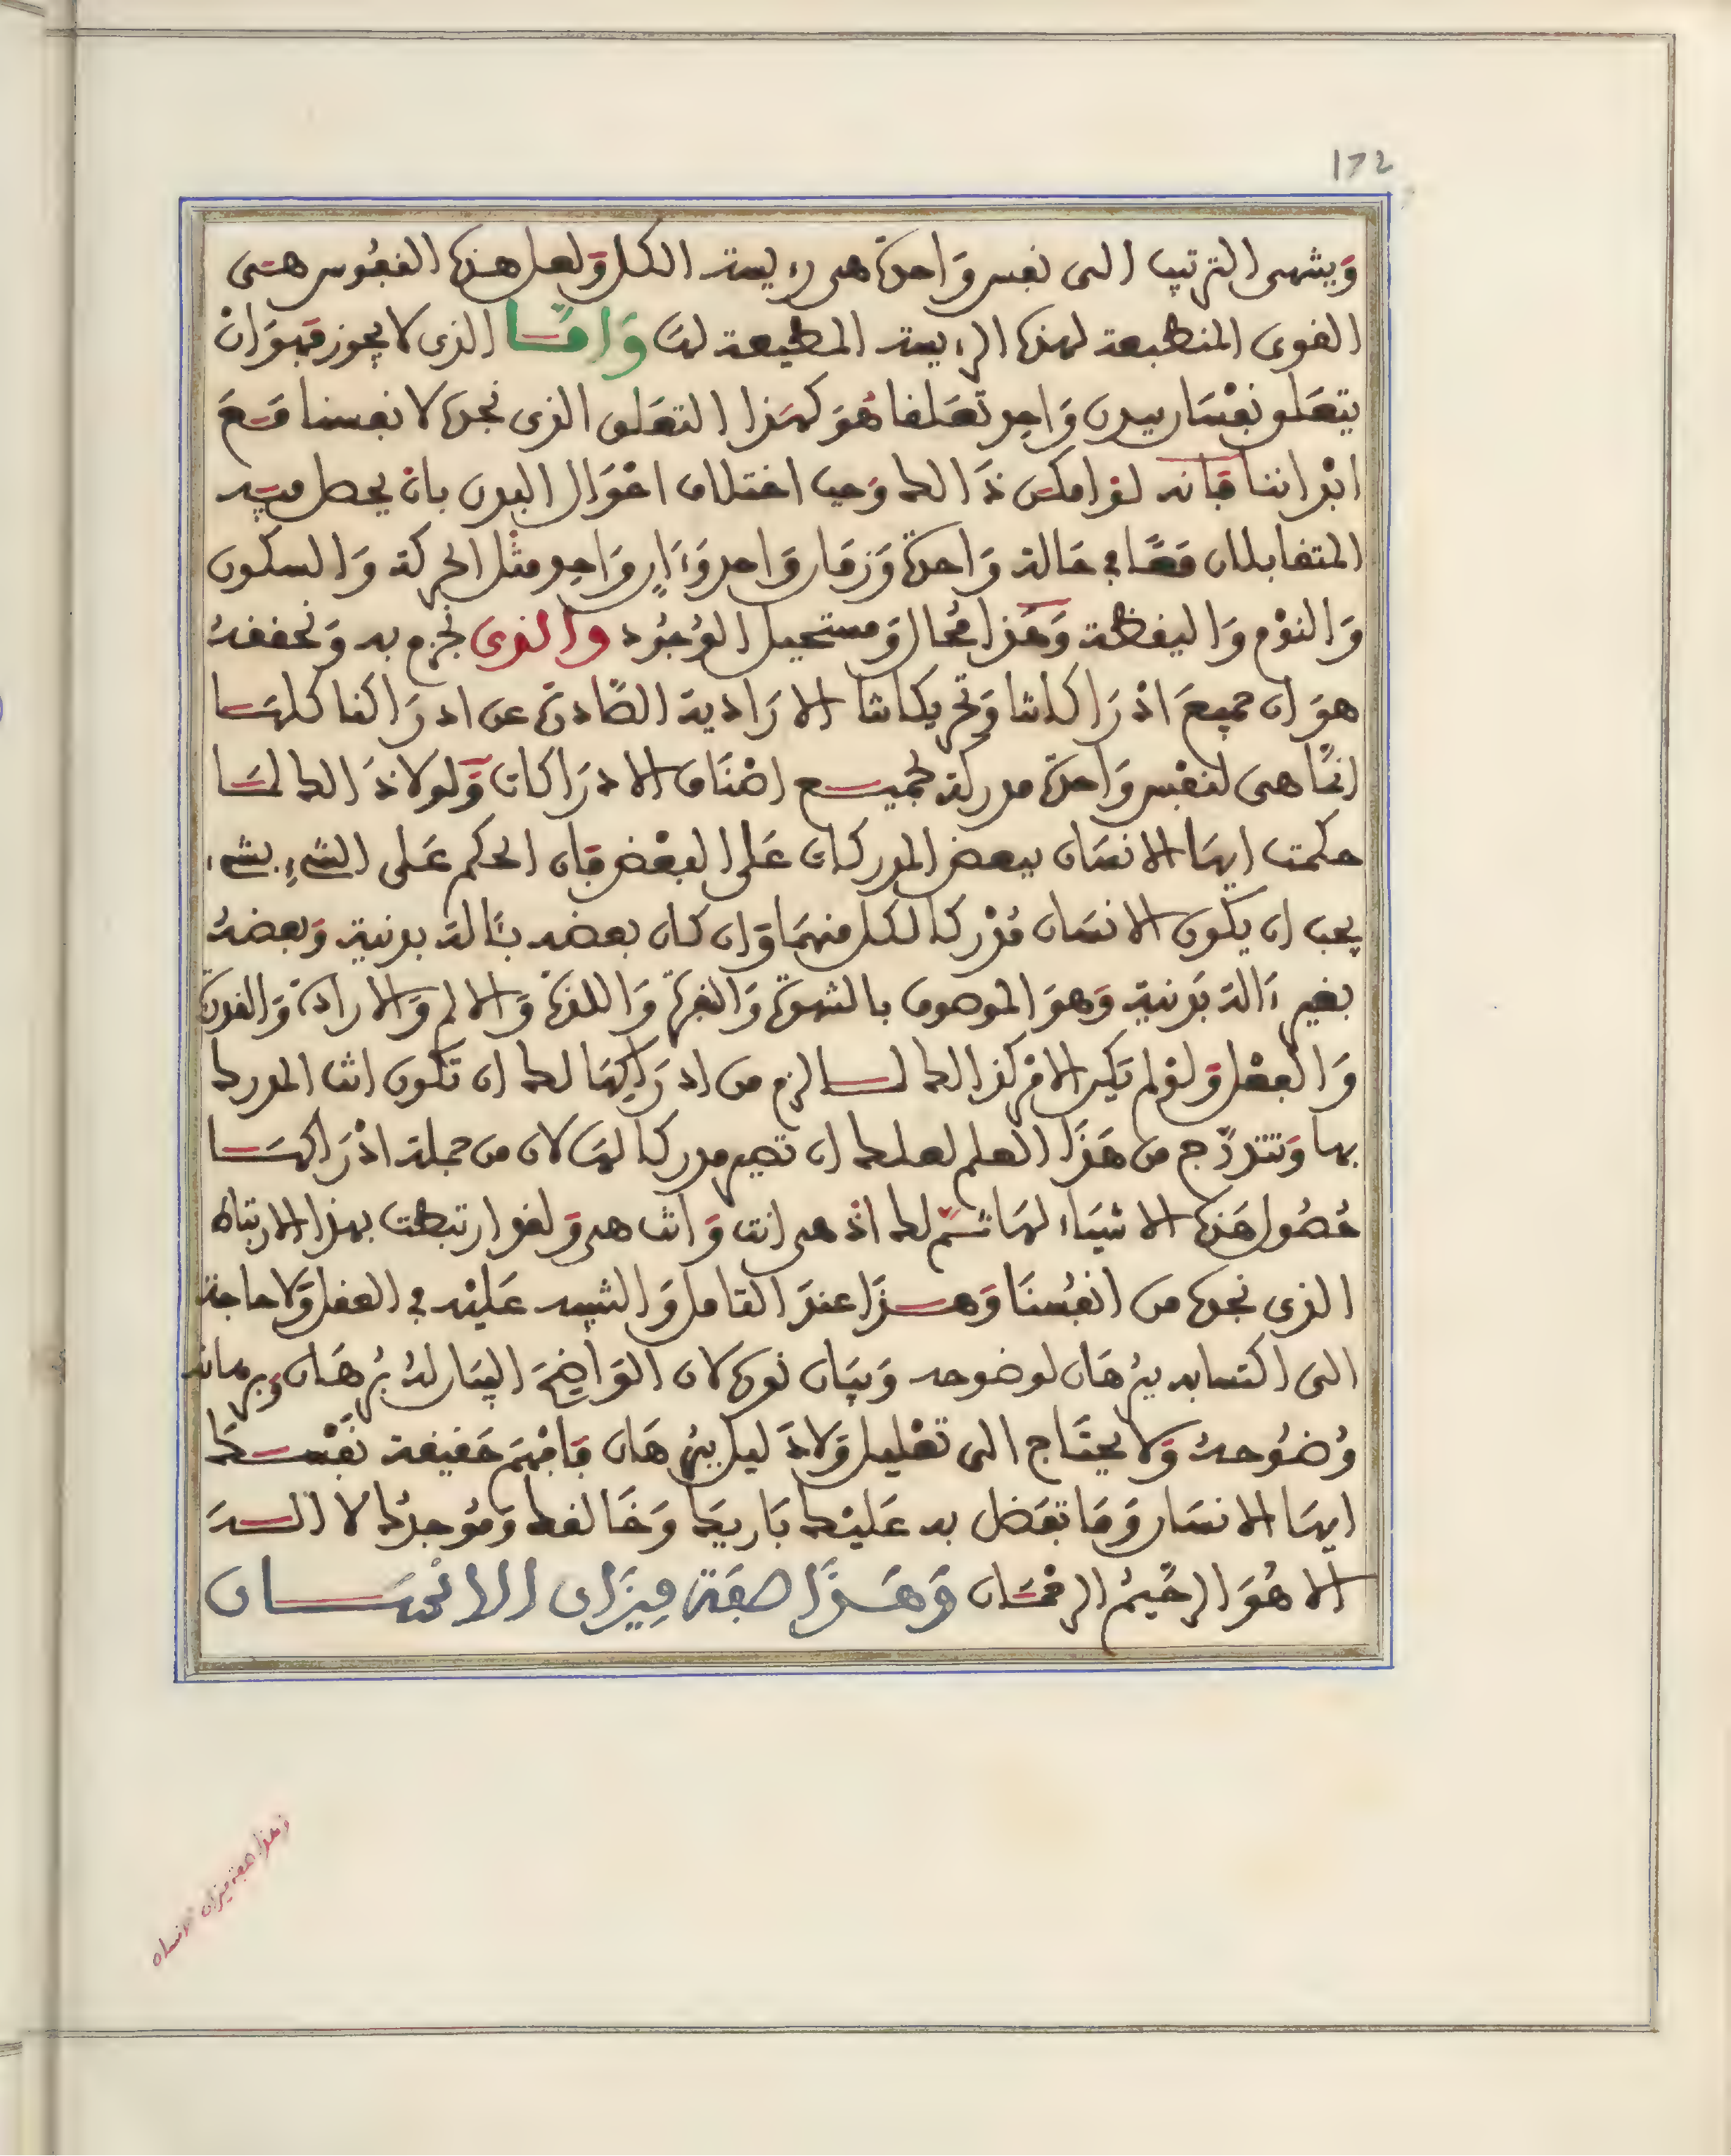 172
وَينتهى الترتيب الى نفس وَاحدة هى رءيسة الكل وَلعل هذه النفوس هى
القوى المنطبعة لهذه الرءيسة المطيعة لها وَامّا الذى لا يجوز فهوَ انْ
يتعَلق نفْسَان ببدن وَاحِد تعَلقا هُوَ كهَذا التعَلق الذى نجده لانفسنا مَعَ
ابْداننا فَانه لوْ امكن ذَالك وَجب اختلاف احْوَال البدن بان يحصل فيه
المتقابلان مَعًا في حَالة وَاحدة وَزمَان وَاحد وَءَانٍ وَاحِد مثْل الحركة وَالسكون
وَالنوْم وَاليقظة وَهَذا مُحَال وَمستحيل الوُجُود والذى نجزم به وَنحققهُ
هوَ ان جميعَ ادْرَاكاتنا وَتحريكاتنا الارَادية الصَّادرة عن ادرَاكنا كلهَا
انمَّا هى لنفْس وَاحدة مدركة لجميع اصْنَاف الادرَاكات وَلولا ذَالك لمَا
حكمت ايهَا الانسَان ببعض المدركات عَلى البعْض فَان الحكم عَلى الشىءِ بشىء
يجب ان يكون الانسَان مُدْركا لكل منهمَا وَان كان بعضه بئَالة بدنية وَبعضهُ
بغير ءَالة بَدنية وَهوَ الموصوف بالشهوَة وَالنفرة وَاللذة وَالالم وَالارادَة وَالقدرة
وَالفعْل وَلوْ لم يَكن الامْر كذالك لما لزم من ادرَاكهَا لك ان تكون انت المدرك
بها وَتتدرّج من هَذَا العلم لعلك ان تصير مدركا لهَا لان من جملة ادْرَاكهَا
حُصُول هَذه الاشيَاء لهَا ثمّ لك اذْ هى انت وَانت هى وَلقد ارتبطت بهذا الارتباط
الذى نجده من انفُسنَا وَهذَا عندَ التامل وَالتنبيه عَليْه في العقل وَلا حاجة
الى اكتسابه ببرْهَان لوضوحه وَبيَان نوره لان الوَاضِحَ البيَان لهُ بُرهَان وَبرهانه
وُضُوحهُ وَلا يحتَاج الى تعْليل وَلا دَليل ببرْهَان فَافهَمْ حَقيقة نفْسكَ
ايهَا الانسَان وَمَا تفَضل به عَليْك بَاريكَ وَخَالقك وَمُوجدُك لا الهَ
الا هُوَ الرحيْمُ الرحْمَان وَهَذَا صفَة مِيزَان الانْسَان
وهذا صفة ميزان الانسان